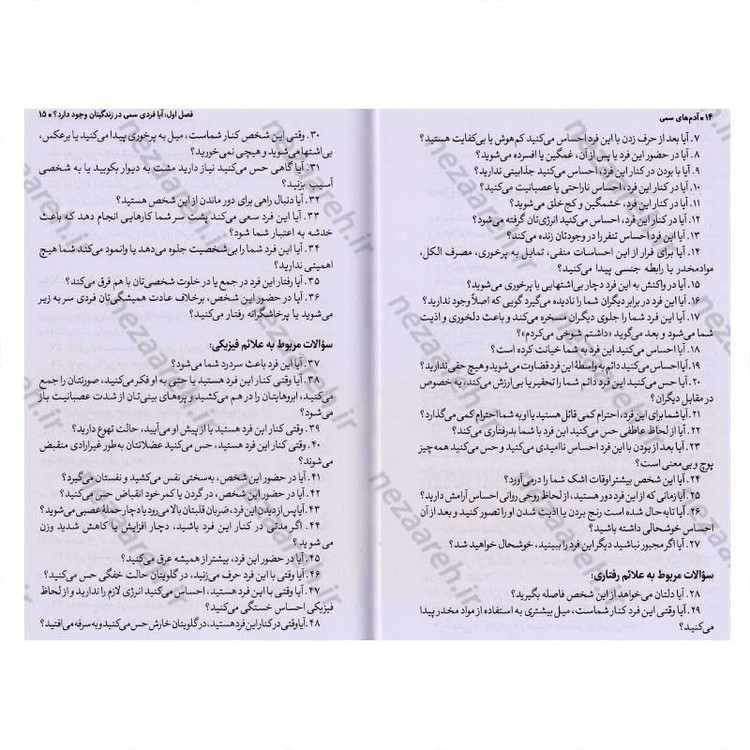 ۱۴ • آدم‌های سمی
۷. آیا بعد از حرف زدن با این فرد احساس می‌کنید کم‌هوش یا بی‌کفایت هستید؟
۸. آیا در حضور این فرد یا پس از آن، غمگین یا افسرده می‌شوید؟
۹. آیا با بودن در کنار این فرد، احساس می‌کنید جذابیتی ندارید؟
۱۰. آیا در کنار این فرد، احساس ناراحتی یا عصبانیت می‌کنید؟
۱۱. آیا در کنار این فرد، خشمگین و کج‌خلق می‌شوید؟
۱۲. آیا در کنار این فرد، احساس می‌کنید انرژی‌تان گرفته می‌شود؟
۱۳. آیا این فرد احساس تنفر را در وجودتان زنده می‌کند؟
۱۴. آیا برای فرار از این احساسات منفی، تمایل به پرخوری، مصرف الکل،
موادمخدر یا رابطه جنسی پیدا می‌کنید؟
۱۵. آیا در واکنش به این فرد دچار بی‌اشتهایی یا پرخوری می‌شوید؟
۱۶. آیا این فرد در برابر دیگران شما را نادیده می‌گیرد گویی که اصلاً وجود ندارید؟
۱۷. آیا این فرد شما را جلوی دیگران مسخره می‌کند و باعث دلخوری و اذیت
شما می‌شود و بعد می‌گوید «داشتم شوخی می‌کردم»؟
۱۸. آیا احساس می‌کنید این فرد به شما خیانت کرده است؟
۱۹. آیا احساس می‌کنید دائم به واسطهٔ این فرد قضاوت می‌شوید و هیچ حقی ندارید؟
۲۰. آیا حس می‌کنید این فرد دائم شما را تحقیر یا بی‌ارزش می‌کند، به خصوص
در مقابل دیگران؟
۲۱. آیا شما برای این فرد، احترام کمی قائل هستید یا او به شما احترام کمی می‌گذارد؟
۲۲. آیا از لحاظ عاطفی حس می‌کنید این فرد با شما بدرفتاری می‌کند؟
۲۳. آیا بعد از بودن با این فرد احساس ناامیدی می‌کنید و حس می‌کنید همه‌چیز
پوچ و بی‌معنی است؟
۲۴. آیا این شخص بیشتر اوقات اشک شما را درمی‌آورد؟
۲۵. آیا زمانی که از این فرد دور هستید، از لحاظ روحی روانی احساس آرامش دارید؟
۲۶. آیا تابه‌حال شده است رنج بردن یا اذیت شدن او را تصور کنید و بعد از آن
احساس خوشحالی داشته باشید؟
۲۷. آیا اگر مجبور نباشید دیگر این فرد را ببینید، خوشحال خواهید شد؟
سؤالات مربوط به علائم رفتاری:
۲۸. آیا دلتان می‌خواهد از این شخص فاصله بگیرید؟
۲۹. آیا وقتی این فرد کنار شماست، میل بیشتری به استفاده از مواد مخدر پیدا
می‌کنید؟
فصل اول: آیا فردی سمی در زندگیتان وجود دارد؟ • ۱۵
۳۰. وقتی این شخص کنار شماست، میل به پرخوری پیدا می‌کنید یا برعکس،
بی‌اشتها می‌شوید و هیچی نمی‌خورید؟
۳۱. آیا گاهی حس می‌کنید نیاز دارید مشت به دیوار بکوبید یا به شخصی
آسیب بزنید؟
۳۲. آیا دنبال راهی برای دور ماندن از این شخص هستید؟
۳۳. آیا این فرد سعی می‌کند پشت سر شما کارهایی انجام دهد که باعث
خدشه به اعتبار شما شود؟
۳۴. آیا این فرد شما را بی‌شخصیت جلوه می‌دهد یا وانمود می‌کند شما هیچ
اهمیتی ندارید؟
۳۵. آیا رفتار این فرد در جمع یا در خلوت شخصی‌تان با هم فرق می‌کند؟
۳۶. آیا در حضور این شخص، برخلاف عادت همیشگی‌تان فردی سر به زیر
می‌شوید یا پرخاشگرانه رفتار می‌کنید؟
سؤالات مربوط به علائم فیزیکی:
۳۷. آیا این فرد باعث سردرد شما می‌شود؟
۳۸. آیا وقتی کنار این فرد هستید یا حتی به او فکر می‌کنید، صورتتان را جمع
می‌کنید، ابروهایتان را در هم می‌کشید و پره‌های بینی‌تان از شدت عصبانیت باز
می‌شود؟
۳۹. آیا وقتی کنار این فرد هستید یا از پیش او می‌آیید، حالت تهوع دارید؟
۴۰. آیا وقتی کنار این فرد هستید، حس می‌کنید عضلاتتان به‌طور غیرارادی منقبض
می‌شوند؟
۴۱. آیا در حضور این شخص، به‌سختی نفس می‌کشید و نفستان می‌گیرد؟
۴۲. آیا در حضور این شخص، در گردن یا کمر خود انقباض حس می‌کنید؟
۴۳. آیا پس از دیدن این فرد، ضربان قلبتان بالا می‌رود یا دچار حملهٔ عصبی می‌شوید؟
۴۴. اگر مدتی در کنار این فرد باشید، دچار افزایش یا کاهش شدید وزن
می‌شوید؟
۴۵. آیا در حضور این فرد، بیشتر از همیشه عرق می‌کنید؟
۴۶. آیا وقتی با این فرد حرف می‌زنید، در گلویتان حالت خفگی حس می‌کنید؟
۴۷. آیا وقتی با این فرد هستید، احساس می‌کنید انرژی لازم را ندارید و از لحاظ
فیزیکی احساس خستگی می‌کنید؟
۴۸. آیا وقتی در کنار این فرد هستید، در گلویتان خارش حس می‌کنید و به سرفه می‌افتید؟
nezaareh.ir